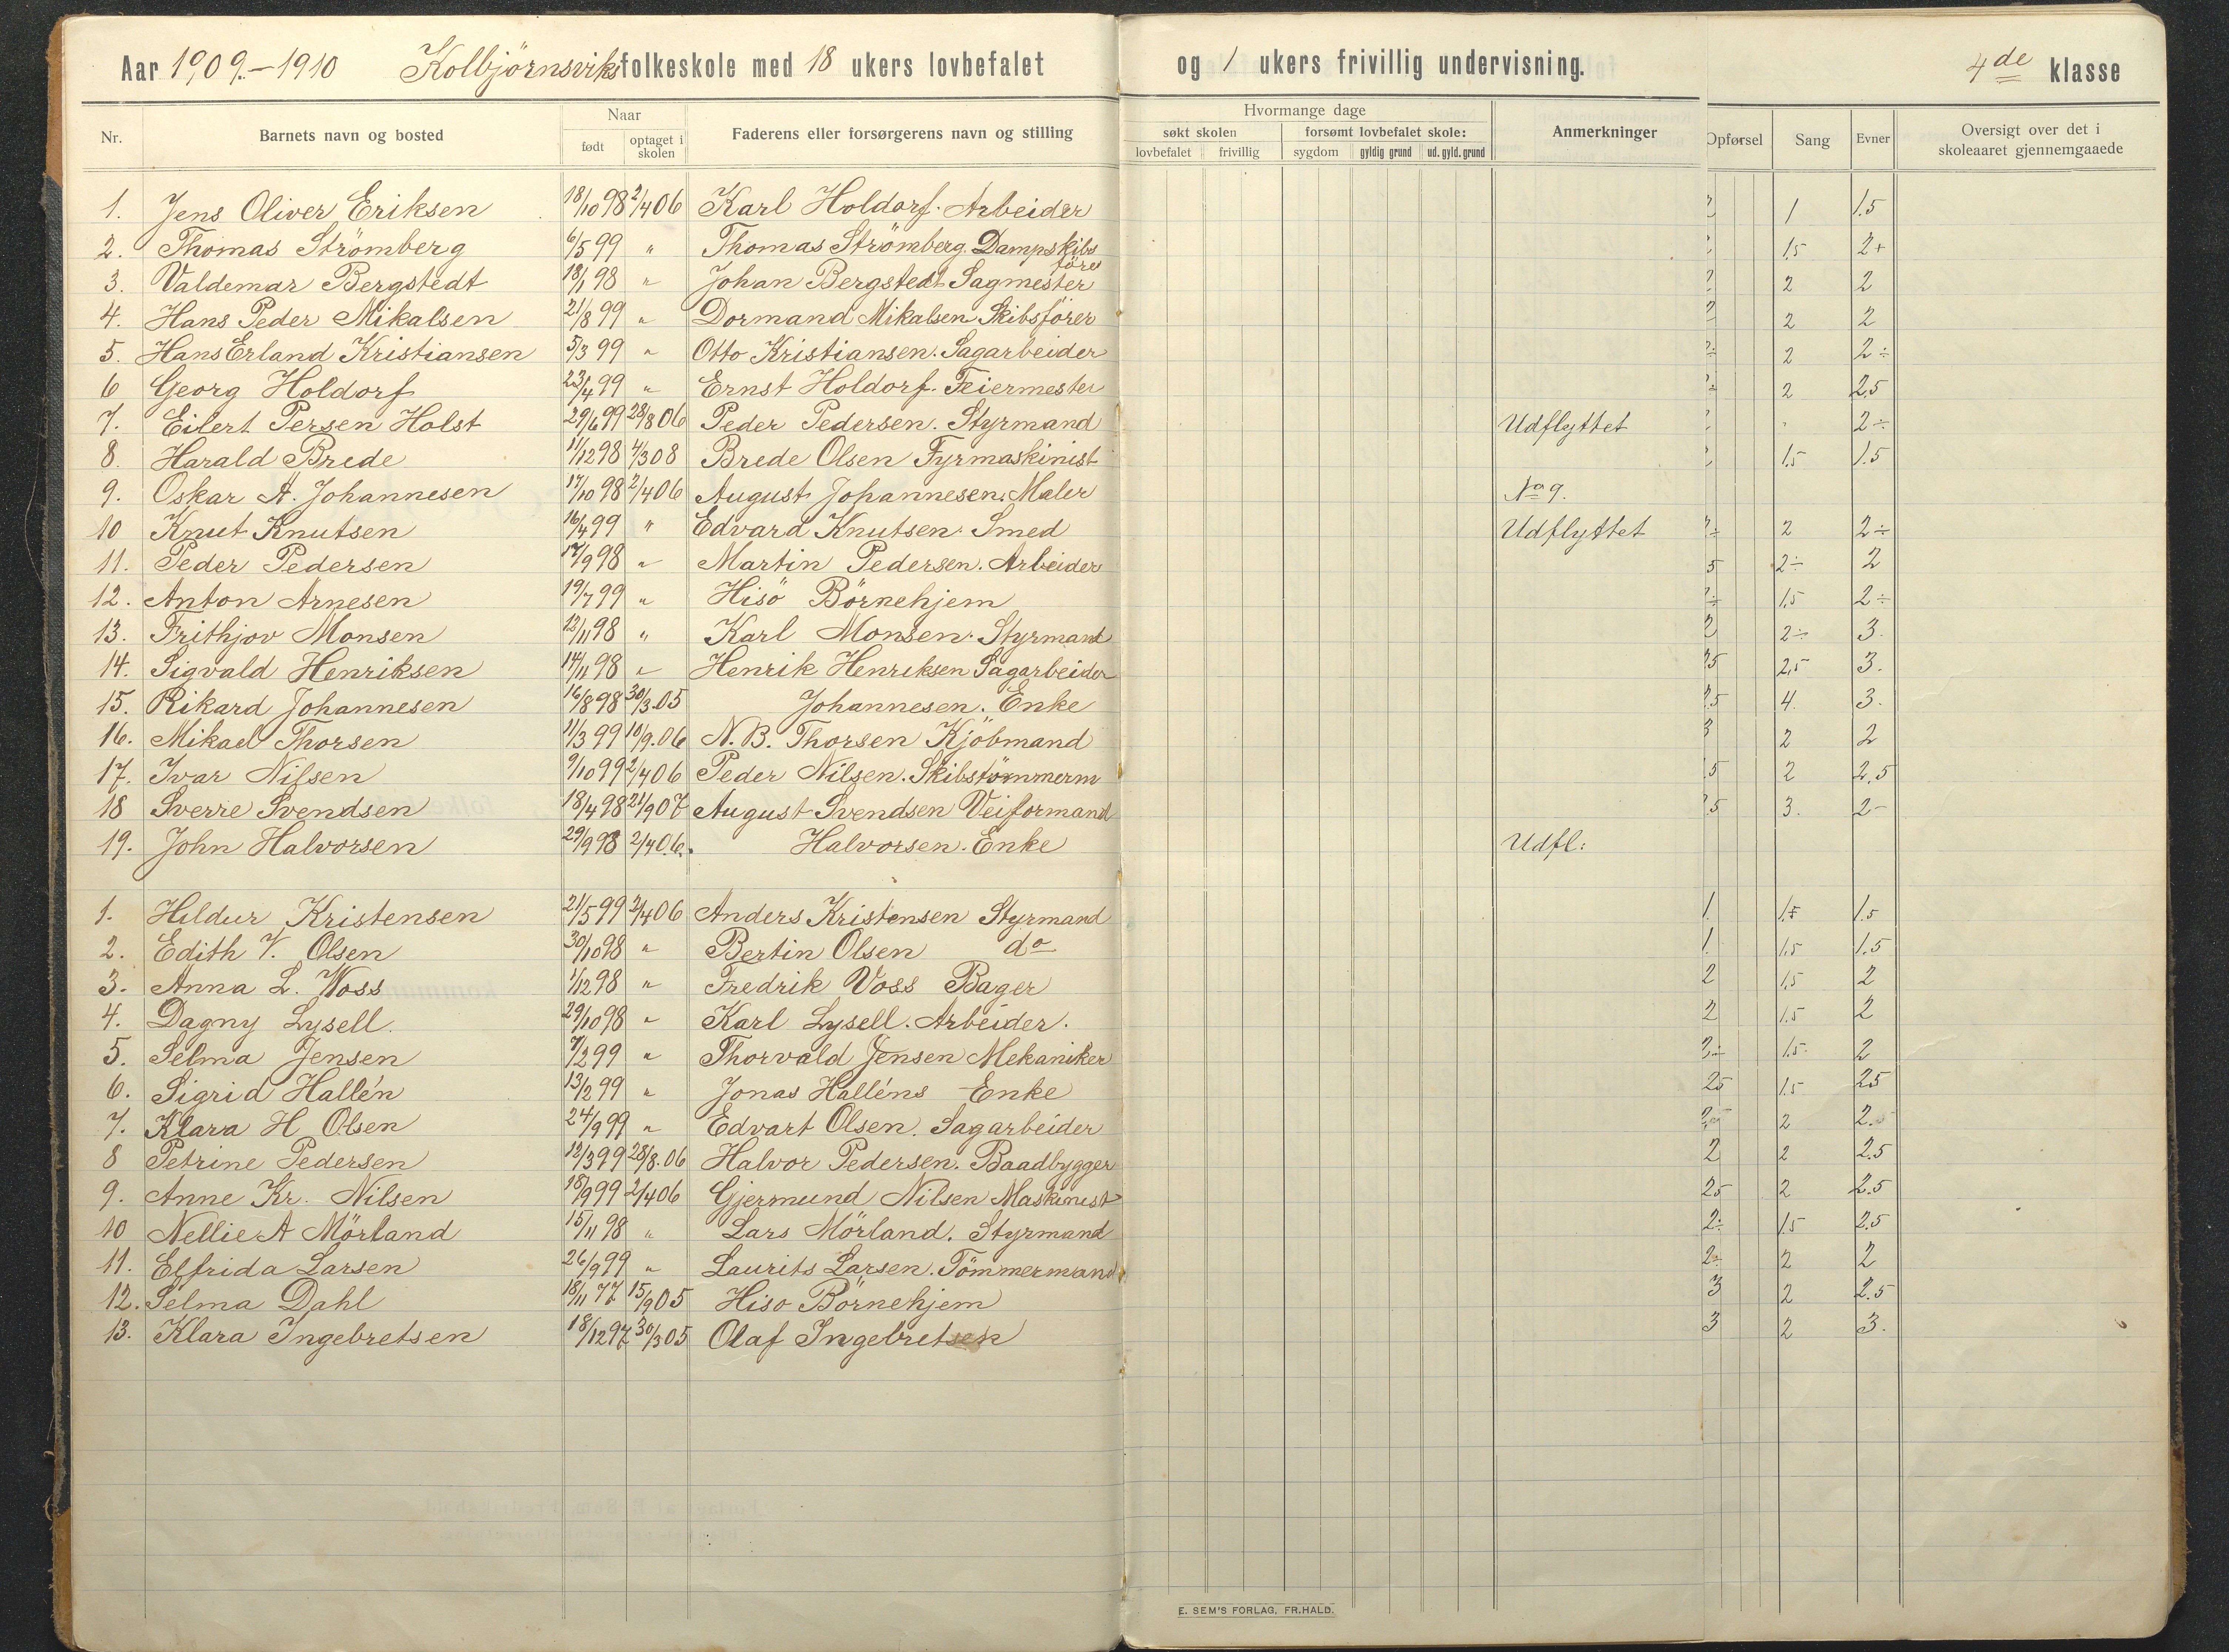 Aar 1909.-1910 Kolbjörnsviks folkeskole med 18 ukers lovbefalet og 1 ukers frivillig undervisning. 4de klasse
Nr. Barnets navn og bosted Naar Faderens eller forsørgerens navn og stilling Hvormange dage Anmerkninger Opførsel Sang Evner Oversigt over det i skoleaaret gjennemgaaede
født optaget i skolen søkt skolen forsømt lovbefalet skole:
lovbefalet frivillig sygdom gyldig grund ud. gyld. grund
1. Jens Oliver Eriksen 18/10 98 2/4 06 Karl Holdorf. Arbeider 2 1 1.5
2. Thomas Strömberg 6/5 99 " Thomas Strömberg. Dampskibsförer 1.5 2+
3. Valdemar Bergstedt 18/1 98 " Johan Bergstedt Sagmester 2 2 2
4. Hans Peder Mikalsen 21/8 99 " Dormand Mikalsen Skibsförer 2 2 2
5. Hans Erland Kristiansen 5/3 99 " Otto Kristiansen. Sagarbeider 2÷ 2 2÷
6 Georg Holdorf 23/4 99 " Ernst Holdorf. Feiermester 2 2.5
7. Eilert Persen Holst 29/6 99 28/8 06 Peder Pedersen. Styrmand Udflyttet 2÷
8. Harald Brede 11/12 98 4/3 08 Brede Olsen Fyrmaskinist 1.5 1.5
9. Oskar A. Johannesen 17/10 98 2/4 06 August Johannesen. Maler No 9.
10 Knut Knutsen 16/4 99 " Edvard Knutsen. Smed Udflyttet 2÷ 2 2÷
11. Peder Pedersen 17/9 98 " Martin Pedersen. Arbeider 5 2÷ 2
12. Anton Arnesen 19/7 99 " Hisö Börnehjem 2÷ 1.5 2÷
13. Frithjov Monsen 13/11 98 " Karl Monsen. Styrmand 2 2÷ 3.
14. Sigvald Henriksen 14/11 98 " Henrik Henriksen Sagarbeider 25 2,5 3.
15. Rikard Johannesen 16/8 98 30/3.05 Johannesen. Enke 25 4. 3.
16. Mikael Thorsen 11/3 99 10/9.06 N. B. Thorsen Kjöbmand 3 2 2
17. Ivar Nilsen 9/10 99 2/4 06 Peder Nilsen. Skibstömmerm 5 2 2.5
18 Sverre Svendsen 18/4 98 21/9 07 August Svendsen Veiformand 25 3. 2-
19. John Halvorsen 29/9 98 2/4 06. Halvorsen. Enke Udfl:
1. Hildur Kristensen 21/5 99 2/4 06 Anders Kristensen Styrmand 1. 1.5 1.5
2. Edith V. Olsen 30/10 98 " Bertin Olsen do 1. 1.5 1.5
3. Anna L. Woss 1/12 98 " Fredrik Voss Bager 2 1,5 2
4. Dagny Lysell. 29/10 98 " Karl Lysell. Arbeider. 2 1.5 2
5. Selma Jensen 7/2 99 " Thorvald Jensen Mekaniker 2÷ 1.5. 2
6. Sigrid Hallén 13/2 99 " Jonas Halléns Enke 25 1.5 25
7. Klara H Olsen 24/9 99 " Edvart Olsen. Sagarbeider 2
8 Petrine Pedersen 12/3 99 28/8.06 Halvor Pedersen. Baadbygger 2 2 2.5
9. Anne Kr. Nilsen 18/9 99 2/4 06 Gjermund Nilsen Maskinist 25 2 2.5
10 Nellie A Mörland 15/11 98 " Lars Mörland. Styrmand 2÷ 1.5 2.5
11. Elfrida Larsen 26/9 99 " Laurits Larsen. Tömmermand 2÷ 2 2
12. Selma Dahl 18/11 77 15/9 05 Hisö Börnehjem 3 2 2.5
13. Klara Ingebretsen 18/12 97 30/3 05 Olaf Ingebretsen 3 2 3.
E. SEM'S FORLAG, FR.HALD.